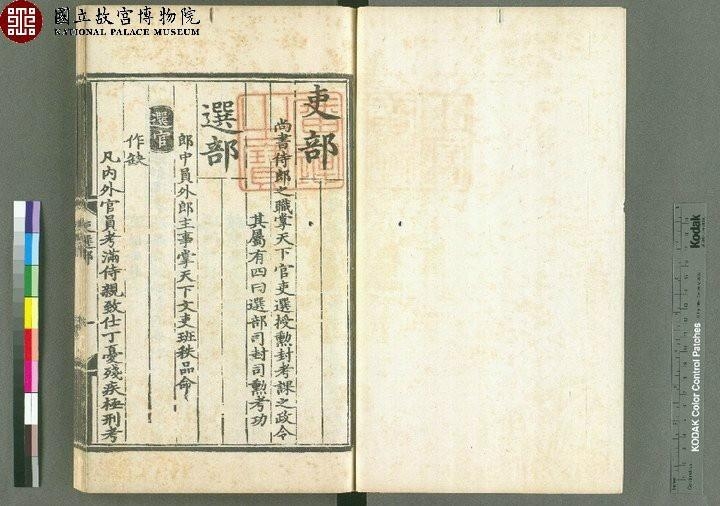 國立故宮博物院
NATIONAL PALACE MUSEUM
吏部
尚書侍郎之職掌天下官吏選授勲封考課之政令
其屬有四曰選部司封司勲考功
選部
郎中員外郎主事掌天下文吏班秩品命
選官
作缺
凡內外官員考滿侍親致仕丁憂殘疾極刑考
吏選部
一
Kodak
KODAK Color Control Patches